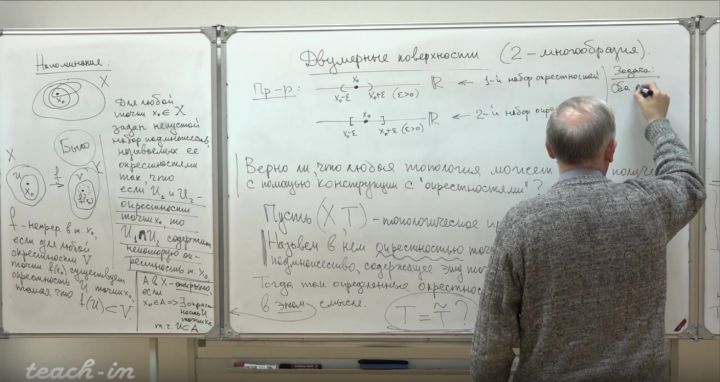 Напоминание:
X
x₀
Для любой
точки x₀ ∈ X
задан непустой
набор подмножеств,
называемых её
окрестностями
так, что
если U₁ и U₂ -
окрестности
точки x₀, то
U₁ ∩ U₂ содержит
некоторую ок-
рестность т. x₀
Было
X
U
x₀
f
V
Y
f - непрер. в т. x₀,
если для любой
окрестности V
точки f(x₀) существует
окрестность U точки x₀,
такая что
f(U) ⊂ V
A ⊂ X - открыто
если
x₀ ∈ A => ∃ окрест-
ность U
точки x₀
т.ч. U ⊂ A
Двумерные поверхности (2-многообразия).
Пр-р:
x₀
x₀-ε x₀+ε (ε>0)
ℝ ← 1-й набор окрестностей
x₀
x₀-ε x₀+ε (ε>0)
ℝ ← 2-й набор
Задача:
Верно ли, что любая топология может
с помощью конструкции с "окрестностями"?
Пусть (X, T) - топологическое
Назовём в нём окрестностью
подмножество, содержащее эту
Тогда так определённые
в этом смысле.
T = T̃ ?
teach-in